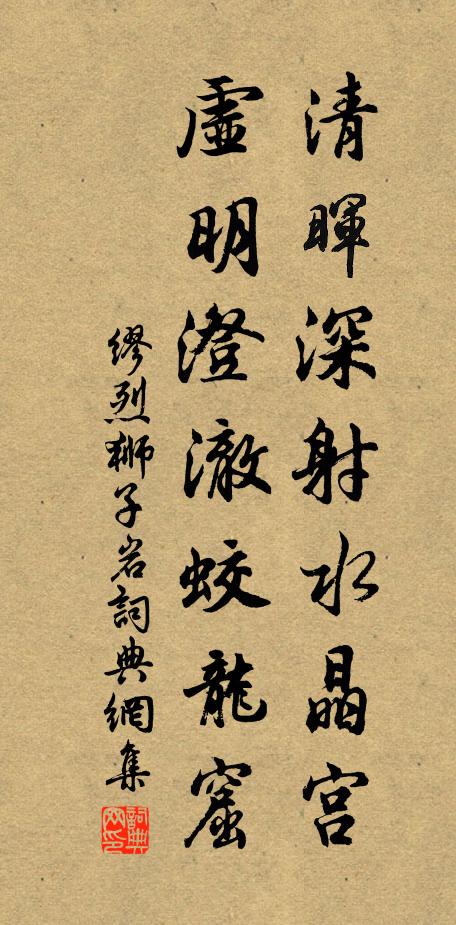 清暉深射水晶宮
虛明澄澈蛟龍窟
繆烈獅子岩詞典網集
詞典網印